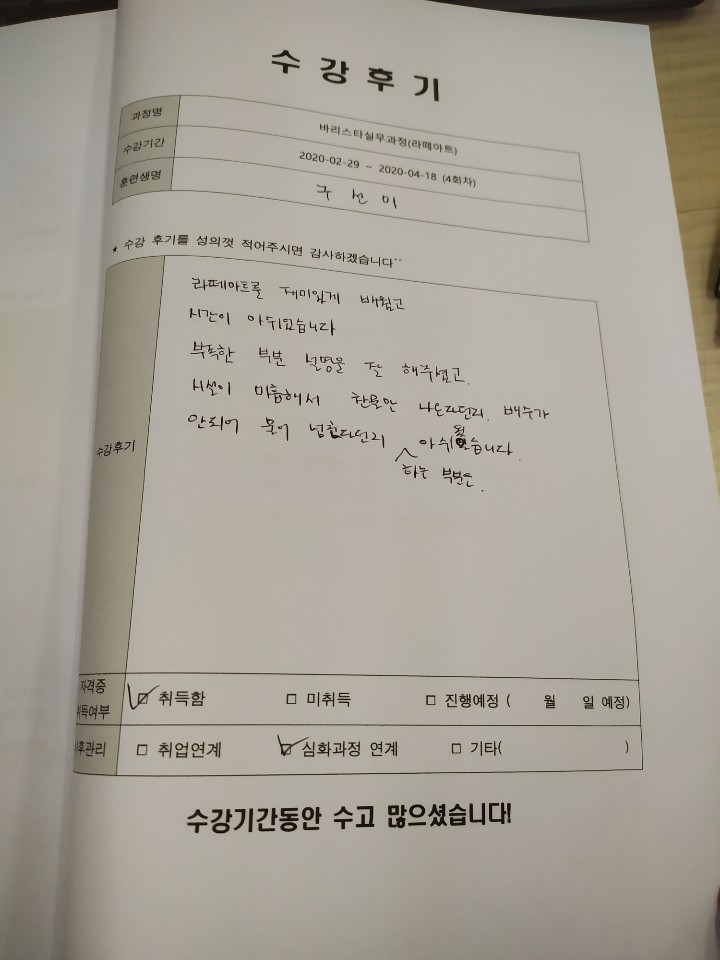 수강후기
과정명 바리스타실무과정(라떼아트)
수강기간 2020-02-29 ~ 2020-04-18 (4회차)
훈련생명 구선미
* 수강 후기를 성의껏 적어주시면 감사하겠습니다^^
수강후기
라떼아트를 재미있게 배웠고
시간이 아쉬웠습니다
부족한 부분 설명을 잘 해주셨고.
시설이 미흡해서 찬물만 나온다던리. 배수가
안되어 물이 넘친다던리 아쉬웠습니다.
하는 부분은.
자격증
취득여부 □ 취득함 □ 미취득 □ 진행예정 ( 월 일 예정)
후관리 □ 취업연계 □ 심화과정 연계 □ 기타( )
수강기간동안 수고 많으셨습니다!